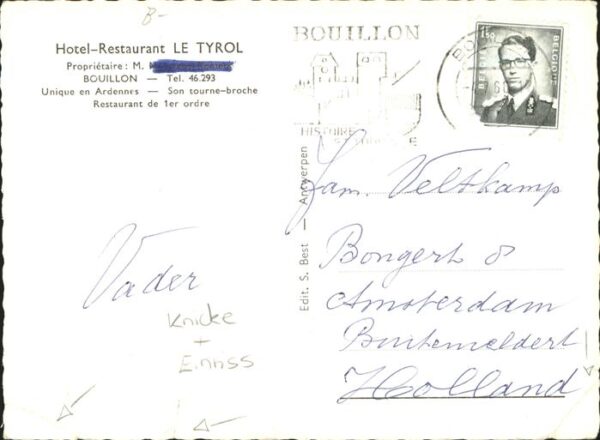 B-
Hotel-Restaurant LE TYROL
Propriétaire : M.
BOUILLON — Tel. 46.293
Unique en Ardennes — Son tourne-broche
Restaurant de 1er ordre
BOUILLON
HISTOIRE
1,50
BELGIE BELGIQUE
Edit. S. Best — Antwerpen
Fam. Veltkamp
Bongerb 8
Amsterdam
Buitenveldert
Holland
Vader
Knicke
+
Einriss